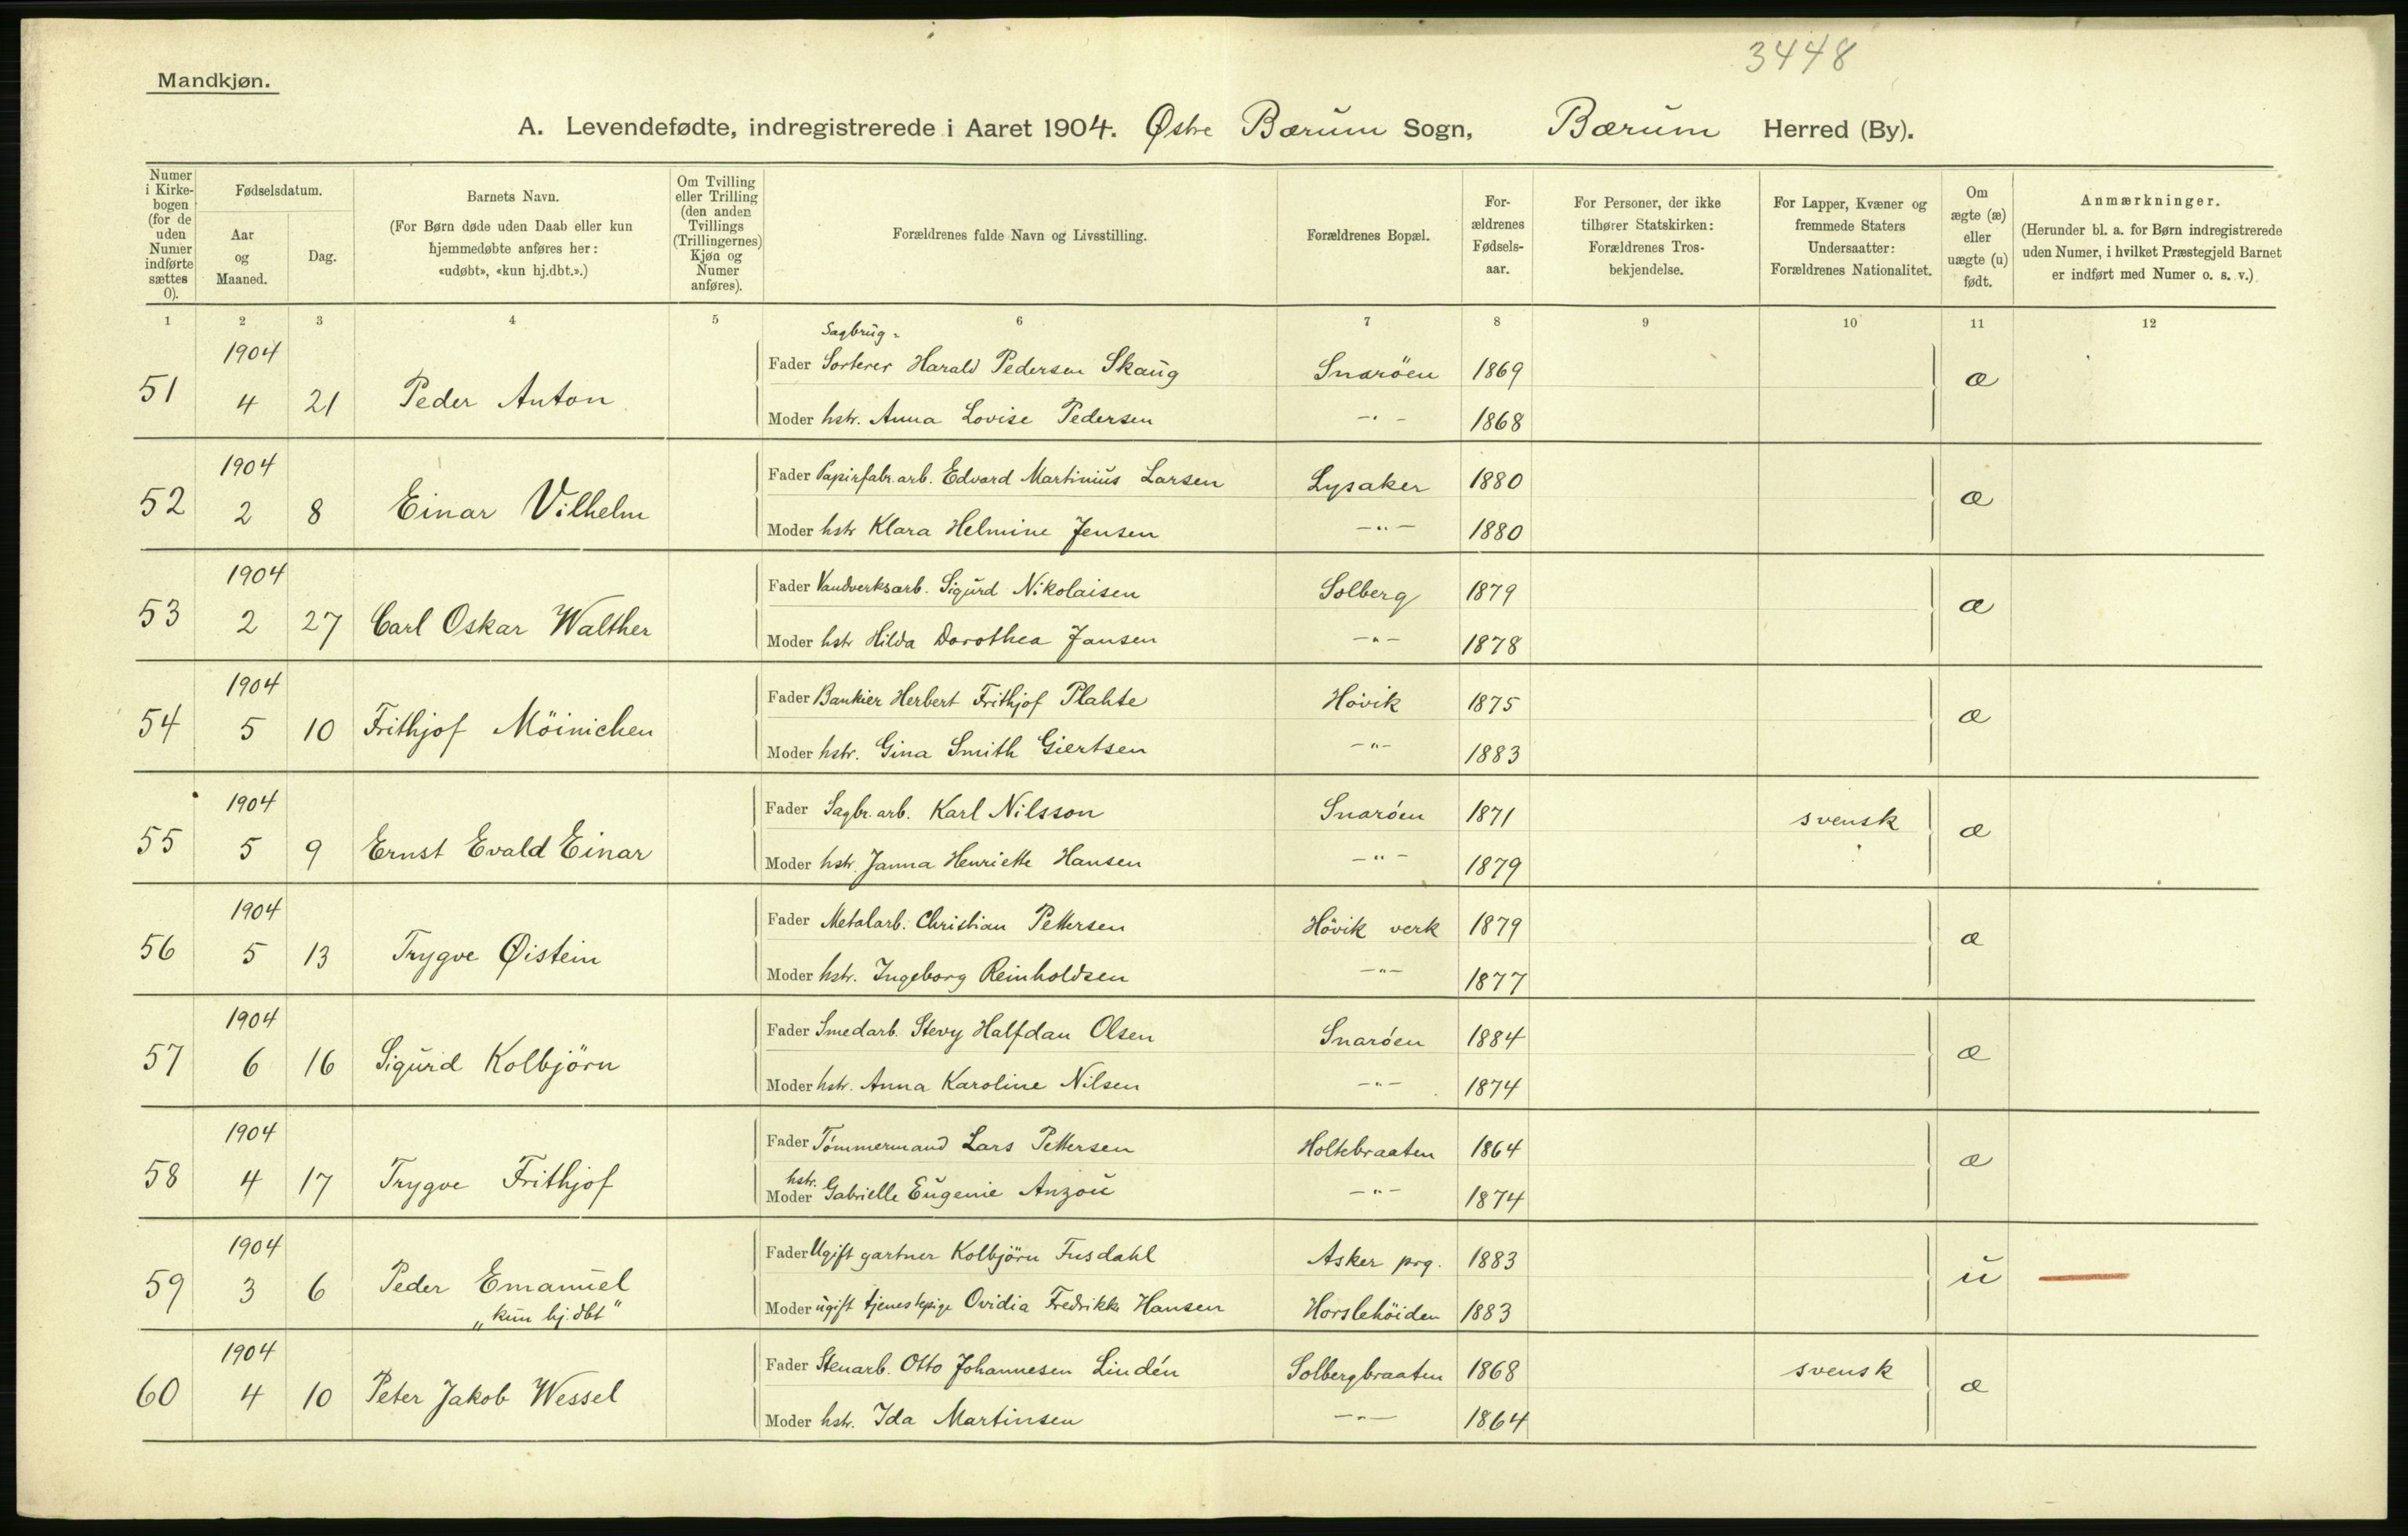 3448
Mandkjøn.
A. Levendefødte, indregistrerede i Aaret 1904. Østre Bærum Sogn, Bærum Herred (By).
Numer i Kirkebogen (for de uden Numer indførte sættes 0).
Fødselsdatum.
Aar og Maaned.
Dag.
Barnets Navn.
(For Børn døde uden Daab eller kun hjemmedøbte anføres her: «udøbt», «kun hj.dbt.».)
Om Tvilling eller Trilling (den anden Tvillings (Trillingernes) Kjøn og Numer anføres).
Forældrenes fulde Navn og Livsstilling.
Forældrenes Bopæl.
Forældrenes Fødselsaar.
For Personer, der ikke tilhører Statskirken: Forældrenes Trosbekjendelse.
For Lapper, Kvæner og fremmede Staters Undersaatter: Forældrenes Nationalitet.
Om ægte (æ) eller uægte (u) født.
Anmærkninger.
(Herunder bl. a. for Børn indregistrerede uden Numer, i hvilket Præstegjeld Barnet er indført med Numer o. s. v.)
1 2 3 4 5 6 7 8 9 10 11 12
51 1904 4 21 Peder Anton
Fader Sagbrug- Sorterer Harald Pedersen Skaug Snaröen 1869 æ
Moder hstr. Anna Lovise Pedersen -„- 1868
52 1904 2 8 Einar Vilhelm
Fader Papirfabr.arb. Edvard Martinius Larsen Lysaker 1880 æ
Moder hstr Klara Helmine Jensen -„- 1880
53 1904 2 27 Carl Oskar Walther
Fader Vandverksarb. Sigurd Nikolaisen Solberg 1879 æ
Moder hstr Hilda Dorothea Jansen -„- 1878
54 1904 5 10 Frithjof Möinichen
Fader Bankier Herbert Frithjof Plahte Hövik 1875 æ
Moder hstr. Gina Smith Giertsen -„- 1883
55 1904 5 9 Ernst Evald Einar
Fader Sagbr. arb. Karl Nilsson Snaröen 1871 svensk æ
Moder hstr. Janna Henriette Hansen -„- 1879
56 1904 5 13 Trygve Øistein
Fader Metalarb. Christian Pettersen Hövik verk 1879 æ
Moder hstr. Ingeborg Reinholdsen -„- 1877
57 1904 6 16 Sigurd Kolbjörn
Fader Smedarb. Stevy Halfdan Olsen Snaröen 1884 æ
Moder hstr. Anna Karoline Nilsen -„- 1874
58 1904 4 17 Trygve Frithjof
Fader Tömmermand Lars Pettersen Holtebraaten 1864 æ
Moder hstr. Gabrielle Eugenie Anzou -„- 1874
59 1904 3 6 Peder Emanuel „kun hj.dbt"
Fader Ugift gartner Kolbjörn Fusdahl Asker prg. 1883 u
Moder ugift tjenestepige Ovidia Fredrikke Hansen Horslehöiden 1883
60 1904 4 10 Peter Jakob Wessel
Fader Stenarb. Otto Johannesen Lindén Solbergbraaten 1868 svensk æ
Moder hstr. Ida Martinsen -„- 1864